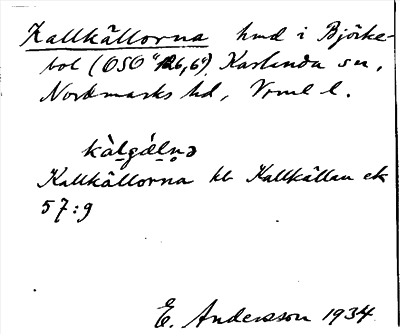 Kallkällorna hmd i Björke-
bol (OSO "126,6"), Karlanda sn,
Nordmarks hd, Vrml l.
kàl̬gǻl̬n̥ə
Kallkällorna hl Kallkällan ek
57:9
E. Andersson 1934